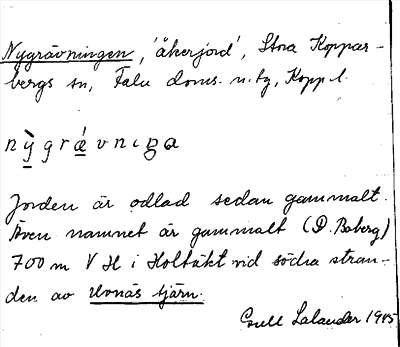 Nygrävningen, 'åkerjord', Stora Koppar-
bergs sn, Falu doms. n. tg, Kopp. l.
nỳgrǽvnıŋa
Jorden är odlad sedan gammalt.
Även namnet är gammalt (D. Boberg)
700 m V H i Holtäkt vid södra stran-
den av Uvnäs tjärn.
Lalander 1945